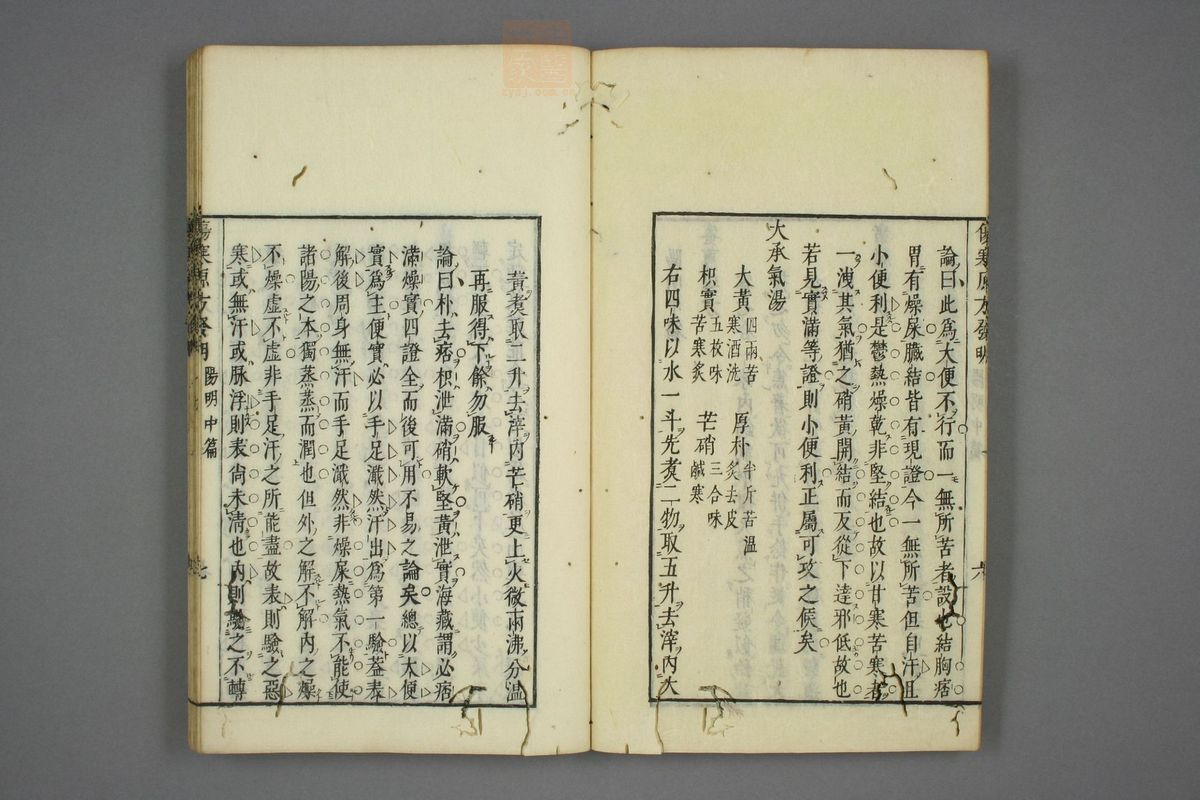 傷寒原方發明
六
論曰此爲大便不行而一無所苦者設也結胸痞
胃有燥屎臟結皆有現證今一無所苦但自汗且
小便利是鬱熱燥乾非堅結也故以甘寒苦寒者
一洩其氣猶之硝黃開結而反從下達邪低故也
若見實滿等證則小便利正屬可攻之候矣
大承氣湯
大黃四兩苦寒酒洗 厚朴半斤苦溫炙去皮
枳實五枚味苦寒炙 芒硝三合味鹹寒
右四味以水一斗先煑二物取五升去滓內大
黃煑取二升去滓內芒硝更上火微兩沸分溫
再服得下餘勿服
論曰朴去痞枳泄滿硝軟堅黃泄實海藏謂必痞
滿燥實四證全而後可用不易之論矣總以大便
實爲主便實必以手足濈然汗出爲第一驗葢表
解後周身無汗而手足濈然非燥屎熱氣不能使
諸陽之本獨蒸蒸而潤也但外之解不解內之燥
不燥虛不虛非手足汗之所能盡故表則驗之惡
寒或無汗或脉浮則表尙未淸也內則驗之不轉
傷寒原方發明
陽明中篇
七